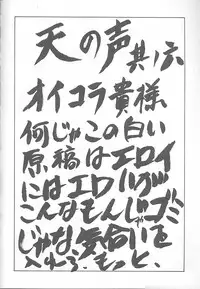 天の声 其ノ六
オイコラ貴様
何じゃこの白い
原稿はエロイ
にはエロいが
こんなもんじゃゴミ
じゃな気合いを
入れろ、もっと、